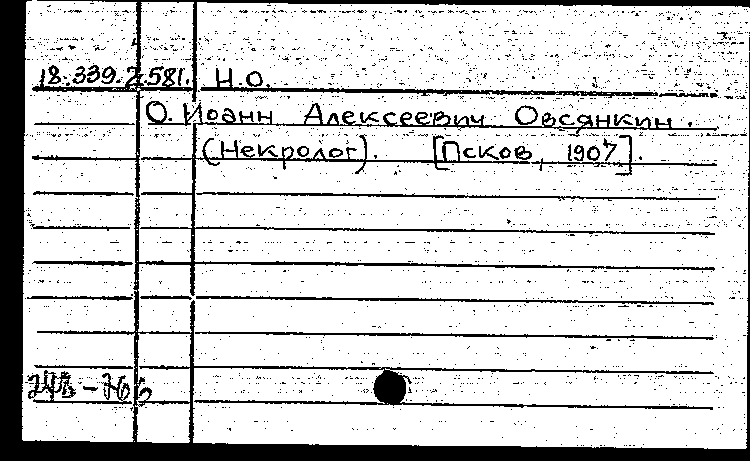 18.339.2.581. Н.О.
О. Иоанн Алексеевич Овсянкин.
(Некролог). [Псков, 1907].